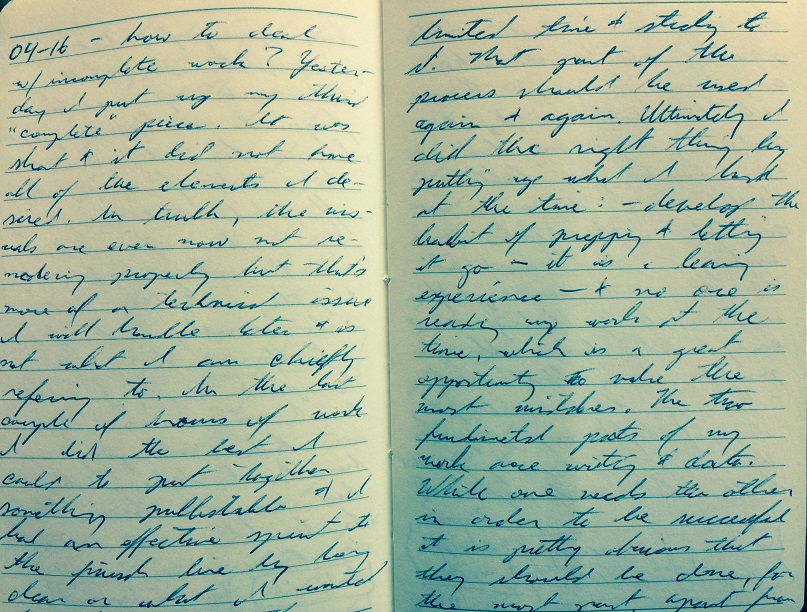 04-16 - how to deal
w/ incomplete work? Yester-
day I put up my third
"complete" piece. It was
short & it did not have
all of the elements I de-
sired. In truth, the vis-
uals are even now not re-
ndering properly but that's
more of a technical issue
I will handle later & is
not what I am chiefly
refering to. In the last
couple of hours of work
I did the best I
could to put together
something publishable & I
had an effective sprint to
the finish line by being
clear on what I wanted
limited time & sticky to
it. That part of the
process should be used
again & again. Ultimately I
did the right thing by
putting up what I had
at the time: - develop the
habit of prepping & letting
it go - it is a learning
experience - & no one is
reading my work at the
time, which is a great
opportunity to make the
most mistakes. The two
fundimetal parts of my
work are writing & data.
While one needs the other
in order to be successful
it is pretty obvious that
they should be done, for
the most part, apart from